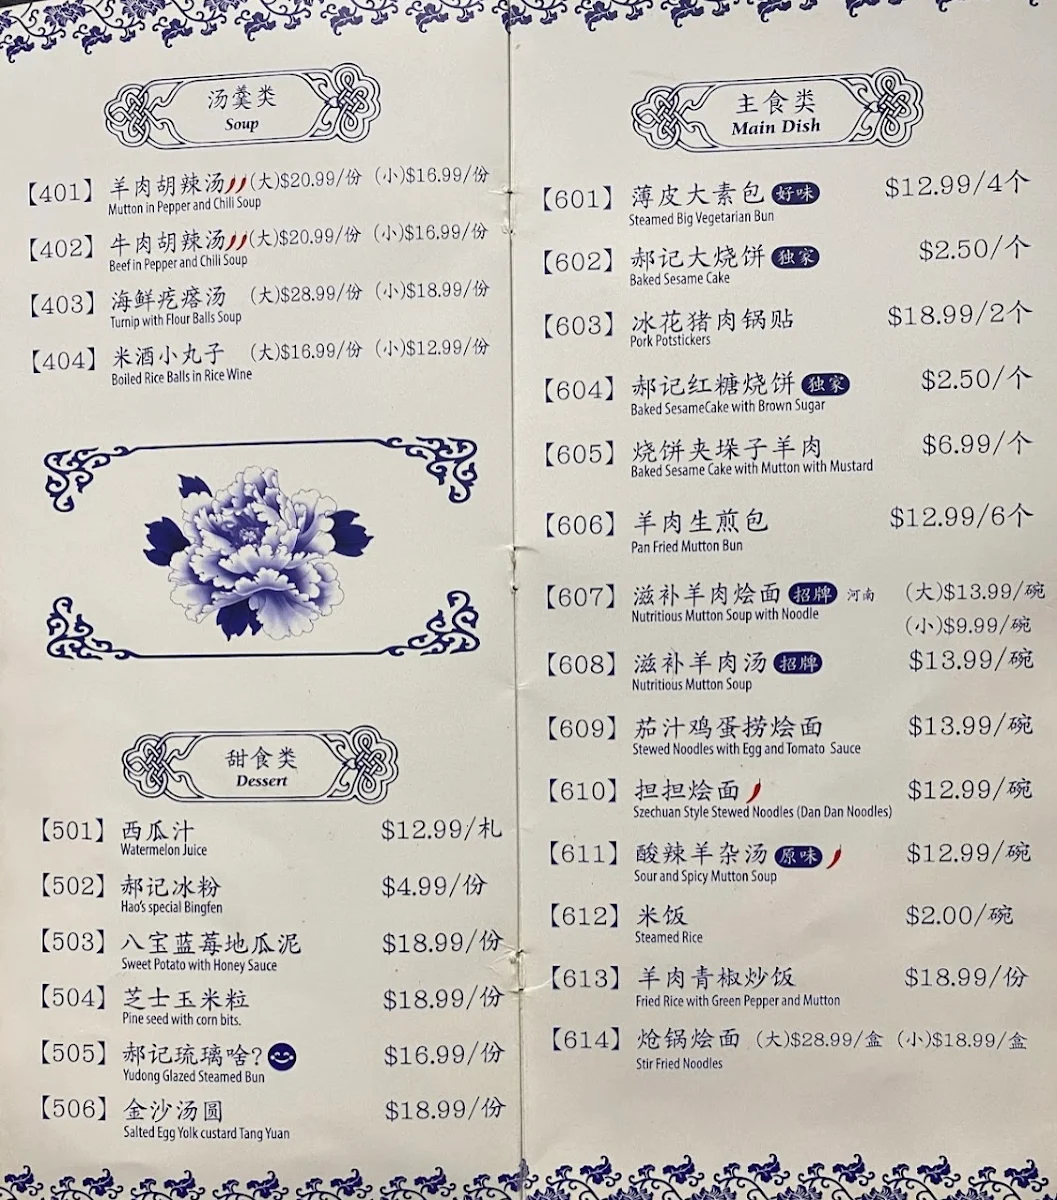 汤羹类
Soup
【401】 羊肉胡辣汤 (大)$20.99/份 (小)$16.99/份
Mutton in Pepper and Chili Soup
【402】 牛肉胡辣汤 (大)$20.99/份 (小)$16.99/份
Beef in Pepper and Chili Soup
【403】 海鲜疙瘩汤 (大)$28.99/份 (小)$18.99/份
Turnip with Flour Balls Soup
【404】 米酒小丸子 (大)$16.99/份 (小)$12.99/份
Boiled Rice Balls in Rice Wine
甜食类
Dessert
【501】 西瓜汁 $12.99/札
Watermelon Juice
【502】 郝记冰粉 $4.99/份
Hao's special Bingfen
【503】 八宝蓝莓地瓜泥 $18.99/份
Sweet Potato with Honey Sauce
【504】 芝士玉米粒 $18.99/份
Pine seed with corn bits.
【505】 郝记琉璃啥? $16.99/份
Yudong Glazed Steamed Bun
【506】 金沙汤圆 $18.99/份
Salted Egg Yolk custard Tang Yuan
主食类
Main Dish
【601】 薄皮大素包 好味 $12.99/4个
Steamed Big Vegetarian Bun
【602】 郝记大烧饼 独家 $2.50/个
Baked Sesame Cake
【603】 冰花猪肉锅贴 $18.99/2个
Pork Potstickers
【604】 郝记红糖烧饼 独家 $2.50/个
Baked SesameCake with Brown Sugar
【605】 烧饼夹垛子羊肉 $6.99/个
Baked Sesame Cake with Mutton with Mustard
【606】 羊肉生煎包 $12.99/6个
Pan Fried Mutton Bun
【607】 滋补羊肉烩面 招牌 河南 (大)$13.99/碗
Nutritious Mutton Soup with Noodle (小)$9.99/碗
【608】 滋补羊肉汤 招牌 $13.99/碗
Nutritious Mutton Soup
【609】 茄汁鸡蛋捞烩面 $13.99/碗
Stewed Noodles with Egg and Tomato Sauce
【610】 担担烩面 $12.99/碗
Szechuan Style Stewed Noodles (Dan Dan Noodles)
【611】 酸辣羊杂汤 原味 $12.99/碗
Sour and Spicy Mutton Soup
【612】 米饭 $2.00/碗
Steamed Rice
【613】 羊肉青椒炒饭 $18.99/份
Fried Rice with Green Pepper and Mutton
【614】 炝锅烩面 (大)$28.99/盒 (小)$18.99/盒
Stir Fried Noodles